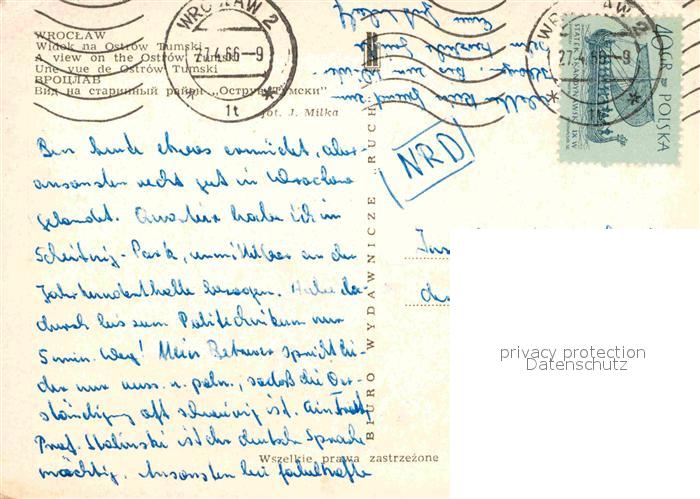 WROCŁAW
Widok na Ostrów Tumski
A view on the Ostrów Tumski
Une vue de Ostrów Tumski
ВРОЦЛАВ
Вид на старинный район „Остров Тумски"
fot. J. Miłka
WROCŁAW 2
27.4.66-9
1t
WROCŁAW 2
27.4.66-9
40 GR
POLSKA
NRD
BIURO WYDAWNICZE „RUCH"
Bin heute etwas ermüdet, aber
ansonsten recht gut in Wrocław
gelandet. Quartier habe ich im
Scheitnig-Park, unmittelbar an der
Jahrhunderthalle bezogen. Habe da-
durch bis zum Politechnikum nur
5 min. Weg! Mein Betreuer spricht lei-
der nur russ. u. poln., sodaß die Ver-
ständigung oft schwierig ist.
Prof. ist der deutsch Sprache
mächtig. Ansonsten bei
Wszelkie prawa zastrzeżone
privacy protection
Datenschutz